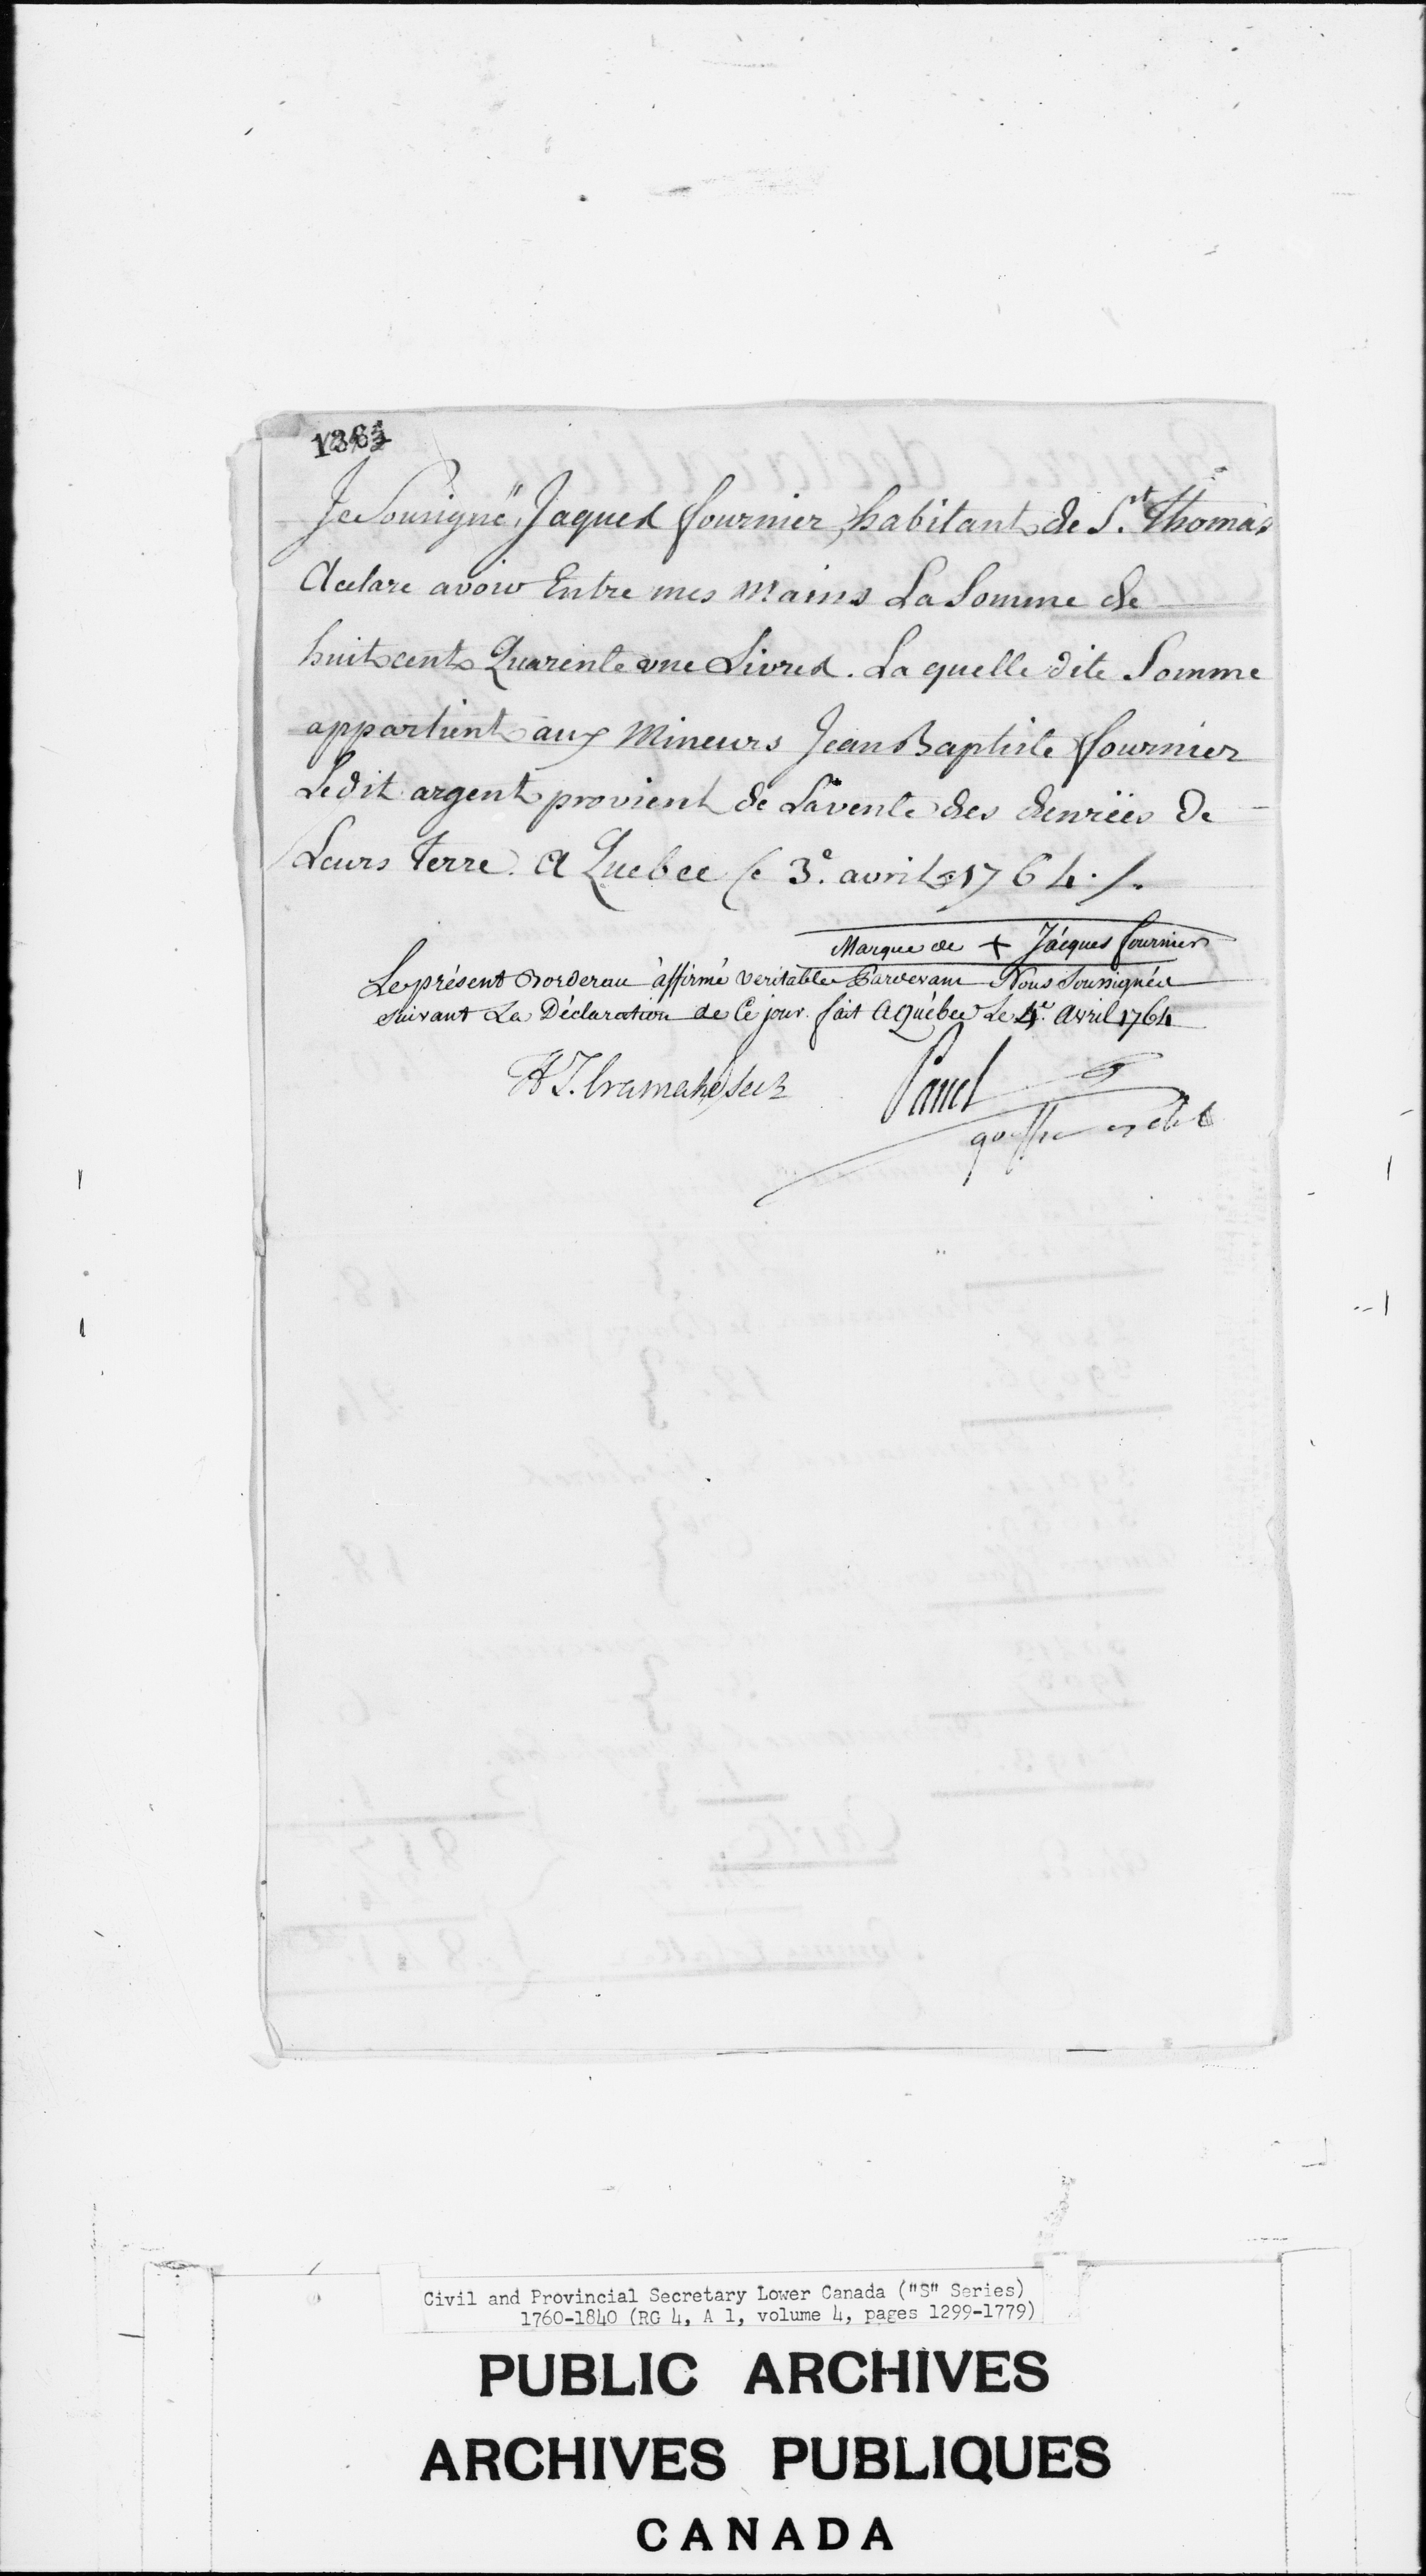 Je Sousigné, Jaques fournier, habitant de St. Thomas
declare avoir Entre mes mains La Somme de
huit cent Quarente une Livres. La quelle dite Somme
appartient aux Mineurs Jean Baptiste fournier
Ledit argent provient de La vente des denrées de
Leurs terre. A Quebec le 3e. avril 1764./.
Marque de + Jacques fournier
Le présent Borderau affirmé veritable Pardevant Nous Soussignés
suivant La Déclaration de Ce jour. fait A Québec Le 4e. Avril 1764
H T. Cramahé Secr
Panet
greffier
Civil and Provincial Secretary Lower Canada ("S" Series)
1760-1840 (RG 4, A 1, volume 4, pages 1299-1779)
PUBLIC ARCHIVES
ARCHIVES PUBLIQUES
CANADA